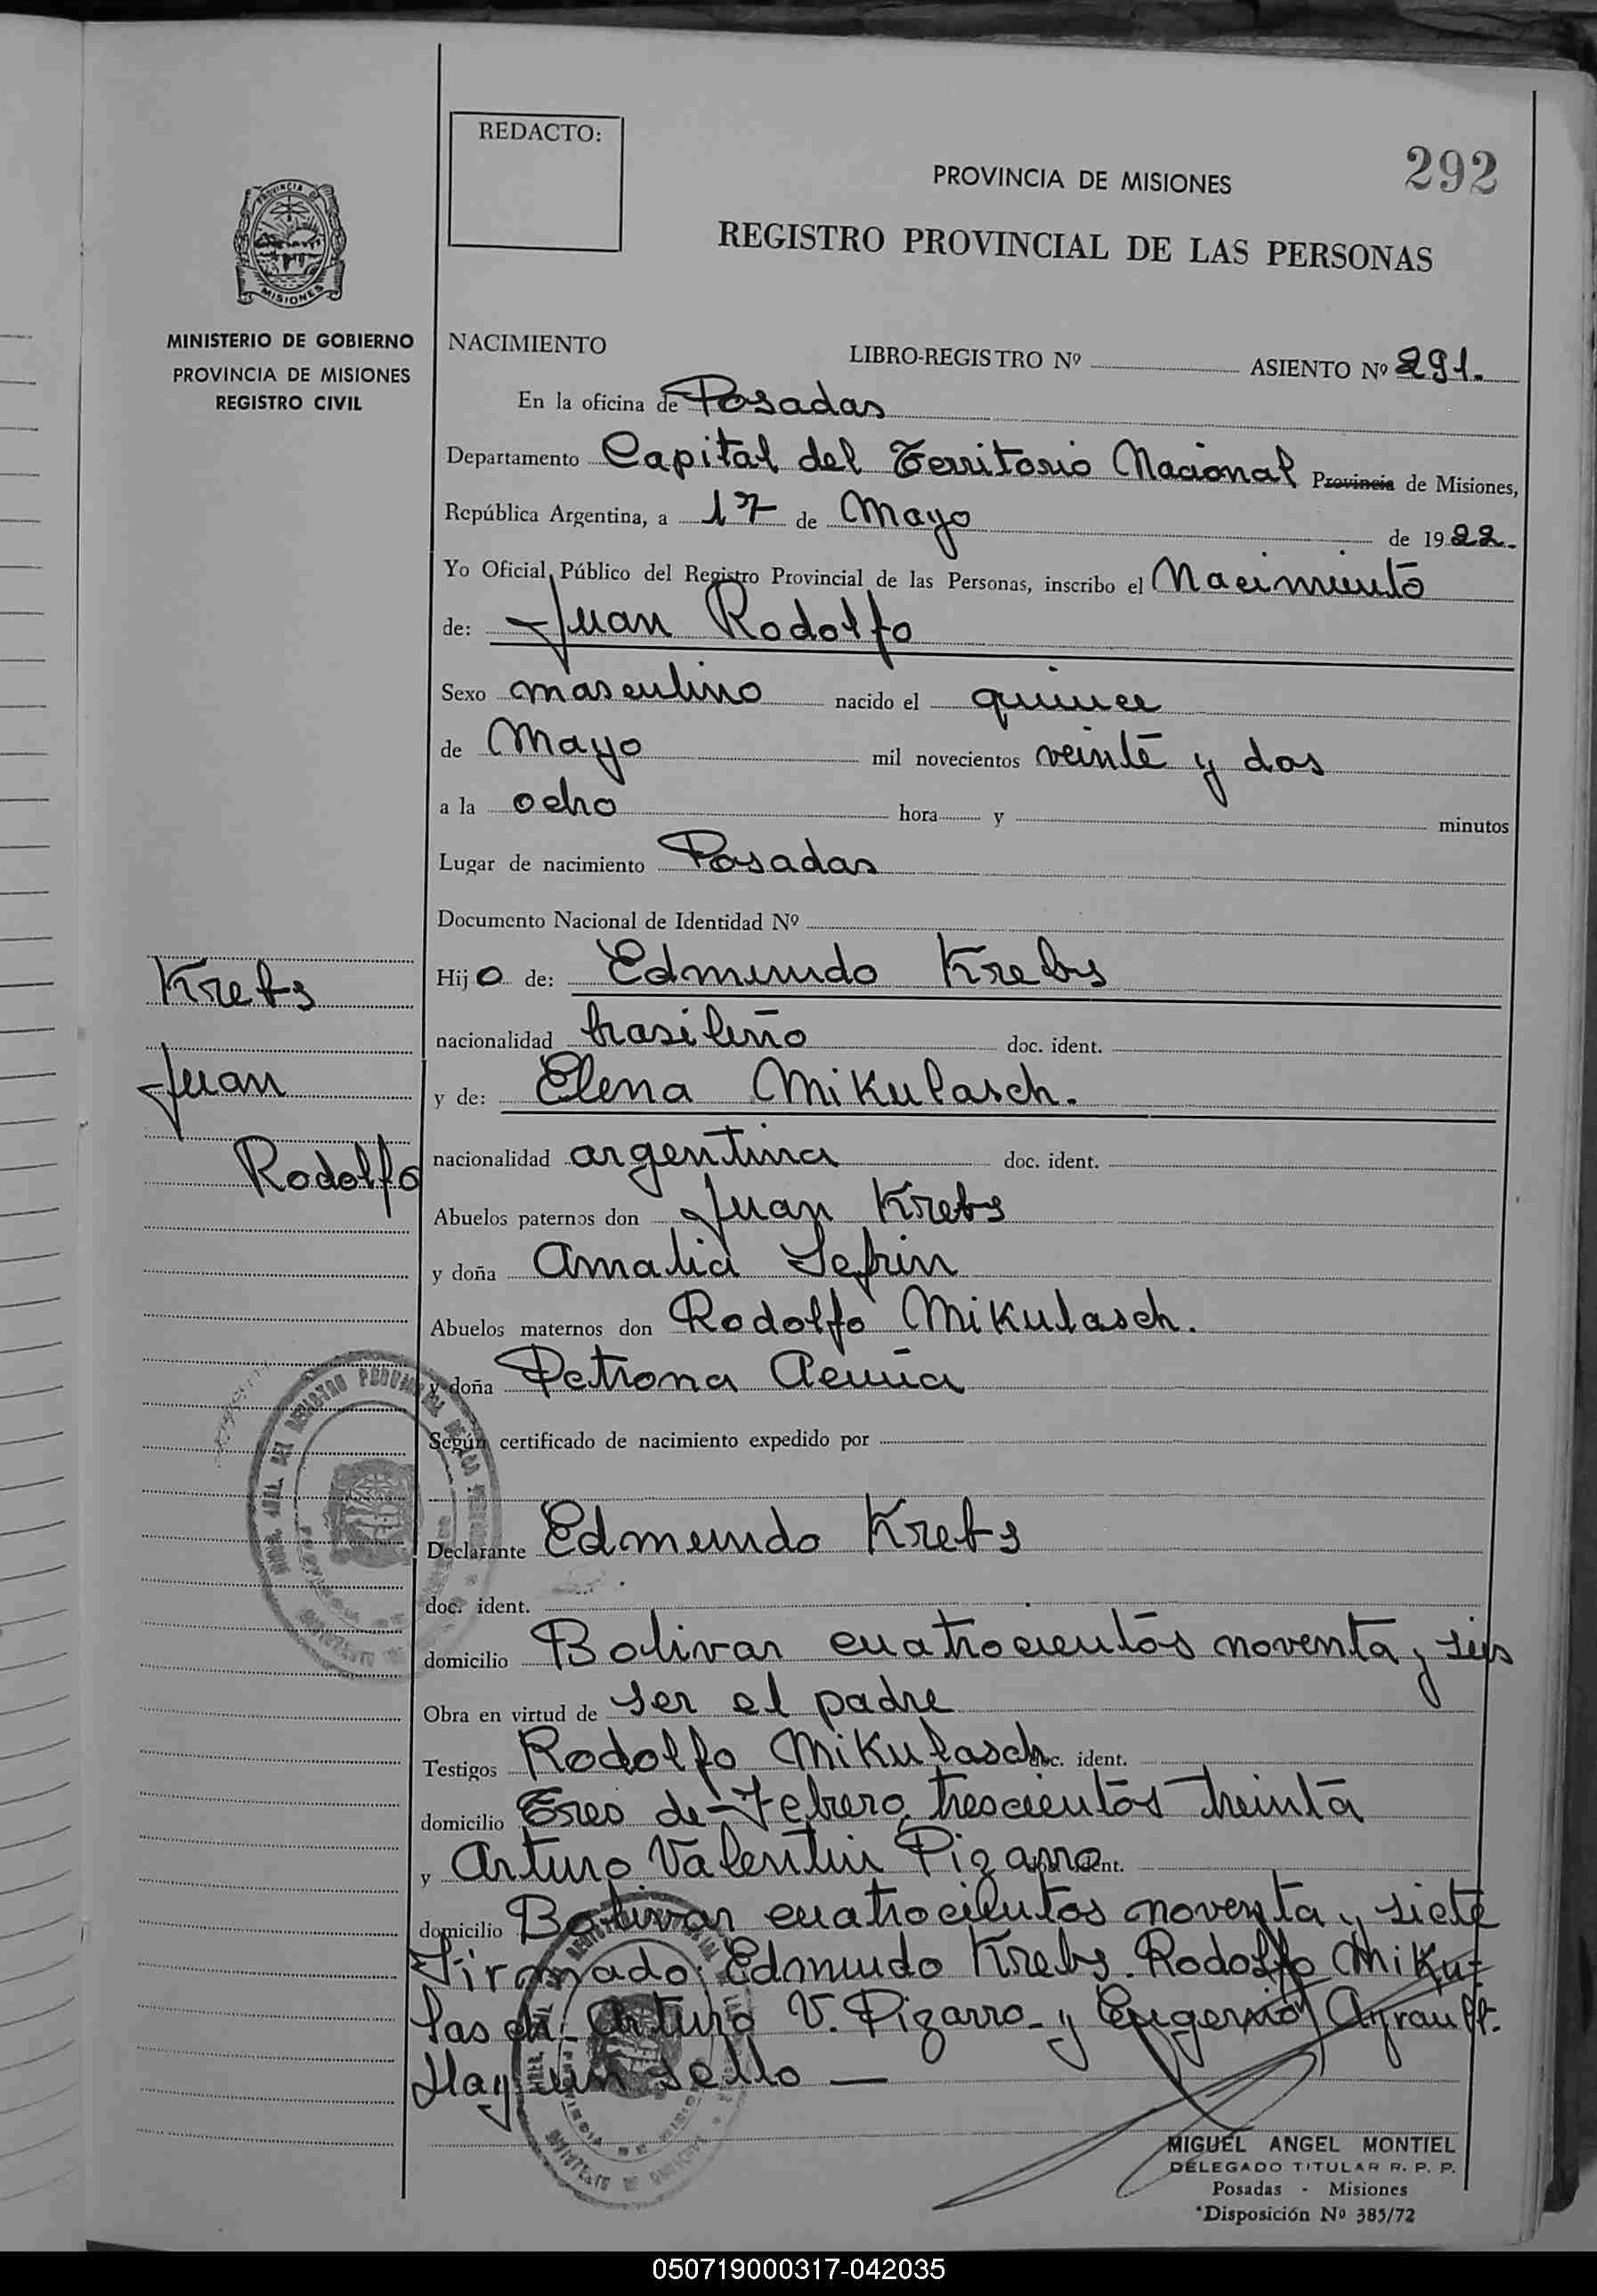 REDACTO:
292
PROVINCIA DE MISIONES
REGISTRO PROVINCIAL DE LAS PERSONAS
PROVINCIA DE
MISIONES
MINISTERIO DE GOBIERNO
PROVINCIA DE MISIONES
REGISTRO CIVIL
NACIMIENTO LIBRO-REGISTRO Nº ASIENTO Nº 291.
En la oficina de Posadas
Departamento Capital del Territorio Nacional Provincia de Misiones,
República Argentina, a 17 de Mayo de 1922.
Yo Oficial Público del Registro Provincial de las Personas, inscribo el Nacimiento
de: Juan Rodolfo
Sexo masculino nacido el quince
de Mayo mil novecientos veinte y dos
a la ocho hora y minutos
Lugar de nacimiento Posadas
Documento Nacional de Identidad Nº
Krebs
Juan
Rodolfo
Hijo de: Edmundo Krebs
nacionalidad brasileño doc. ident.
y de: Elena Mikulasch.
nacionalidad argentina doc. ident.
Abuelos paternos don Juan Krebs
y doña Amalia
Abuelos maternos don Rodolfo Mikulasch.
y doña Petrona Acuña
Según certificado de nacimiento expedido por
Declarante Edmundo Krebs
doc. ident.
domicilio Bolivar cuatrocientos noventa y seis
Obra en virtud de ser el padre
Testigos Rodolfo Mikulasch doc. ident.
domicilio Tres de Febrero trescientos treinta
y Arturo Valentin Pizarro doc. ident.
domicilio Bolivar cuatrocientos noventa y siete
Firmado: Edmundo Krebs. Rodolfo Miku=
lasch- Arturo V. Pizarro- y Eugenio Ayrault.
Hay un sello —
MIGUEL ANGEL MONTIEL
DELEGADO TITULAR R. P. P.
Posadas - Misiones
*Disposición Nº 385/72
050719000317-042035